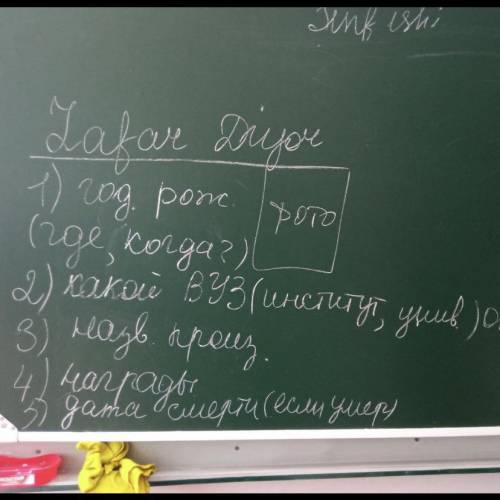 Zafar Diyor
1) год. рож.
(где, когда?)
фото
2) какой ВУЗ (институт, унив.)
3) назв. произ.
4) награды
5) дата смерти (если умер)